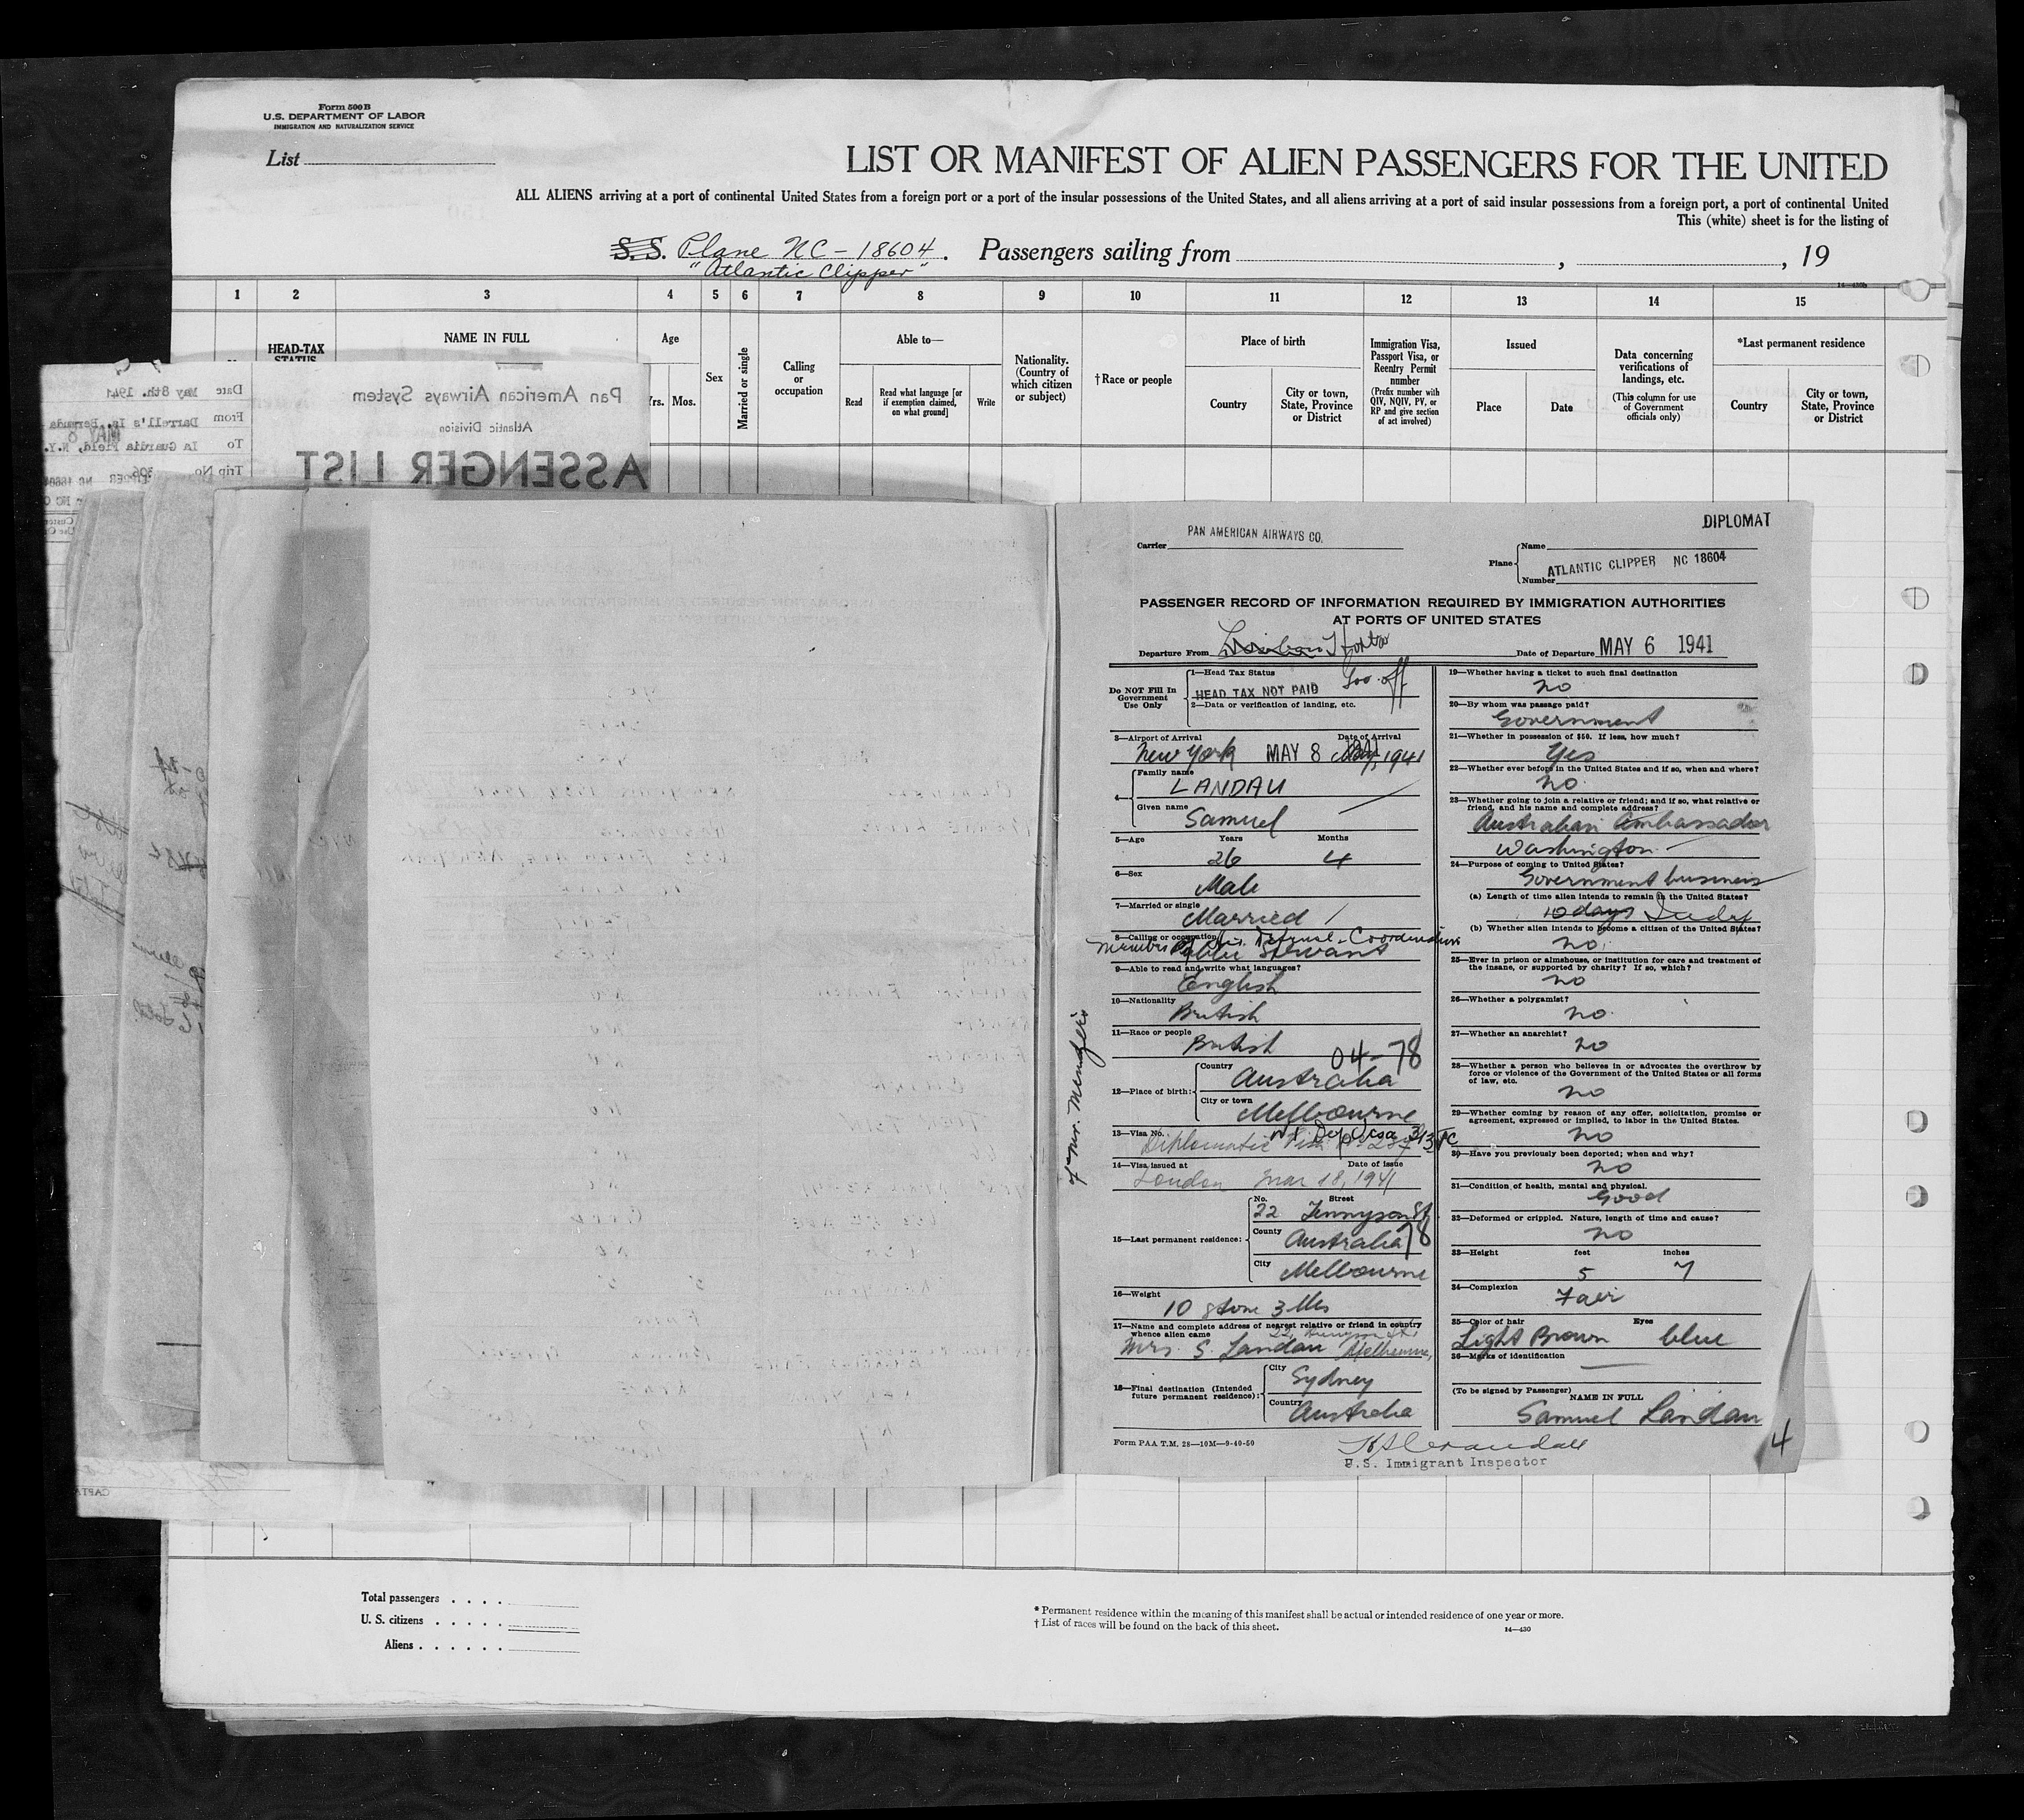 Form 500 B
U.S. DEPARTMENT OF LABOR
IMMIGRATION AND NATURALIZATION SERVICE
List
LIST OR MANIFEST OF ALIEN PASSENGERS FOR THE UNITED
ALL ALIENS arriving at a port of continental United States from a foreign port or a port of the insular possessions of the United States, and all aliens arriving at a port of said insular possessions from a foreign port, a port of continental United
This (white) sheet is for the listing of
S. S. Plane NC-18604. Passengers sailing from , , 19
"Atlantic Clipper"
1 2 3 4 5 6 7 8 9 10 11 12 13 14 15
HEAD-TAX STATUS
NAME IN FULL
Age
Yrs. Mos.
Sex
Married or single
Calling or occupation
Able to—
Read
Read what language [or if exemption claimed, on what ground]
Write
Nationality. (Country of which citizen or subject)
†Race or people
Place of birth
Country
City or town, State, Province or District
Immigration Visa, Passport Visa, or Reentry Permit number
(Prefix number with QIV, NQIV, PV, or RP and give section of act involved)
Issued
Place
Date
Data concerning verifications of landings, etc.
(This column for use of Government officials only)
*Last permanent residence
Country
City or town, State, Province or District
Pan American Airways System
Atlantic Division
ASSENGER LIST
Date May 8th. 1941
From Darrell's Is. Bermuda
To La Guardia Field, N.Y.
Trip No. 306
DIPLOMAT
Carrier PAN AMERICAN AIRWAYS CO.
Plane Name
ATLANTIC CLIPPER NC 18604
Number
PASSENGER RECORD OF INFORMATION REQUIRED BY IMMIGRATION AUTHORITIES
AT PORTS OF UNITED STATES
Departure From Lisbon Horta Date of Departure MAY 6 1941
Do NOT Fill In Government Use Only
1—Head Tax Status
HEAD TAX NOT PAID Gov. off
2—Data or verification of landing, etc.
3—Airport of Arrival Date of Arrival
New York MAY 8 1941
4— Family name
LANDAU
Given name
Samuel
5—Age Years Months
26 4
6—Sex
Male
7—Married or single
Married
8—Calling or occupation
Public Servant
9—Able to read and write what languages?
English
10—Nationality
British
11—Race or people
British
04-78
12—Place of birth: Country
Australia
City or town
Melbourne
13—Visa No.
Diplomatic Visa
14—Visa issued at Date of issue
London Mar 18, 1941
15—Last permanent residence: No. Street
22 Tennyson St
County
Australia 78
City
Melbourne
16—Weight
10 stone 3 lbs
17—Name and complete address of nearest relative or friend in country whence alien came
Mrs. S. Landau Melbourne
18—Final destination (Intended future permanent residence): City
Sydney
Country
Australia
Form PAA T.M. 28—10M—9-40-50
of Mr. Menzies
19—Whether having a ticket to such final destination
no
20—By whom was passage paid?
Government
21—Whether in possession of $50. If less, how much?
Yes
22—Whether ever before in the United States and if so, when and where?
no
23—Whether going to join a relative or friend; and if so, what relative or friend, and his name and complete address?
Australian Ambassador
Washington
24—Purpose of coming to United States?
Government business
(a) Length of time alien intends to remain in the United States?
10 days
(b) Whether alien intends to become a citizen of the United States?
no
25—Ever in prison or almshouse, or institution for care and treatment of the insane, or supported by charity? If so, which?
no
26—Whether a polygamist?
no
27—Whether an anarchist?
no
28—Whether a person who believes in or advocates the overthrow by force or violence of the Government of the United States or all forms of law, etc.
no
29—Whether coming by reason of any offer, solicitation, promise or agreement, expressed or implied, to labor in the United States.
no
30—Have you previously been deported; when and why?
no
31—Condition of health, mental and physical.
Good
32—Deformed or crippled. Nature, length of time and cause?
no
33—Height feet inches
5 7
34—Complexion
Fair
35—Color of hair Eyes
Light Brown blue
36—Marks of identification
(To be signed by Passenger)
NAME IN FULL
Samuel Landau
U.S. Immigrant Inspector
4
Total passengers
U. S. citizens
Aliens
* Permanent residence within the meaning of this manifest shall be actual or intended residence of one year or more.
† List of races will be found on the back of this sheet.
14—430